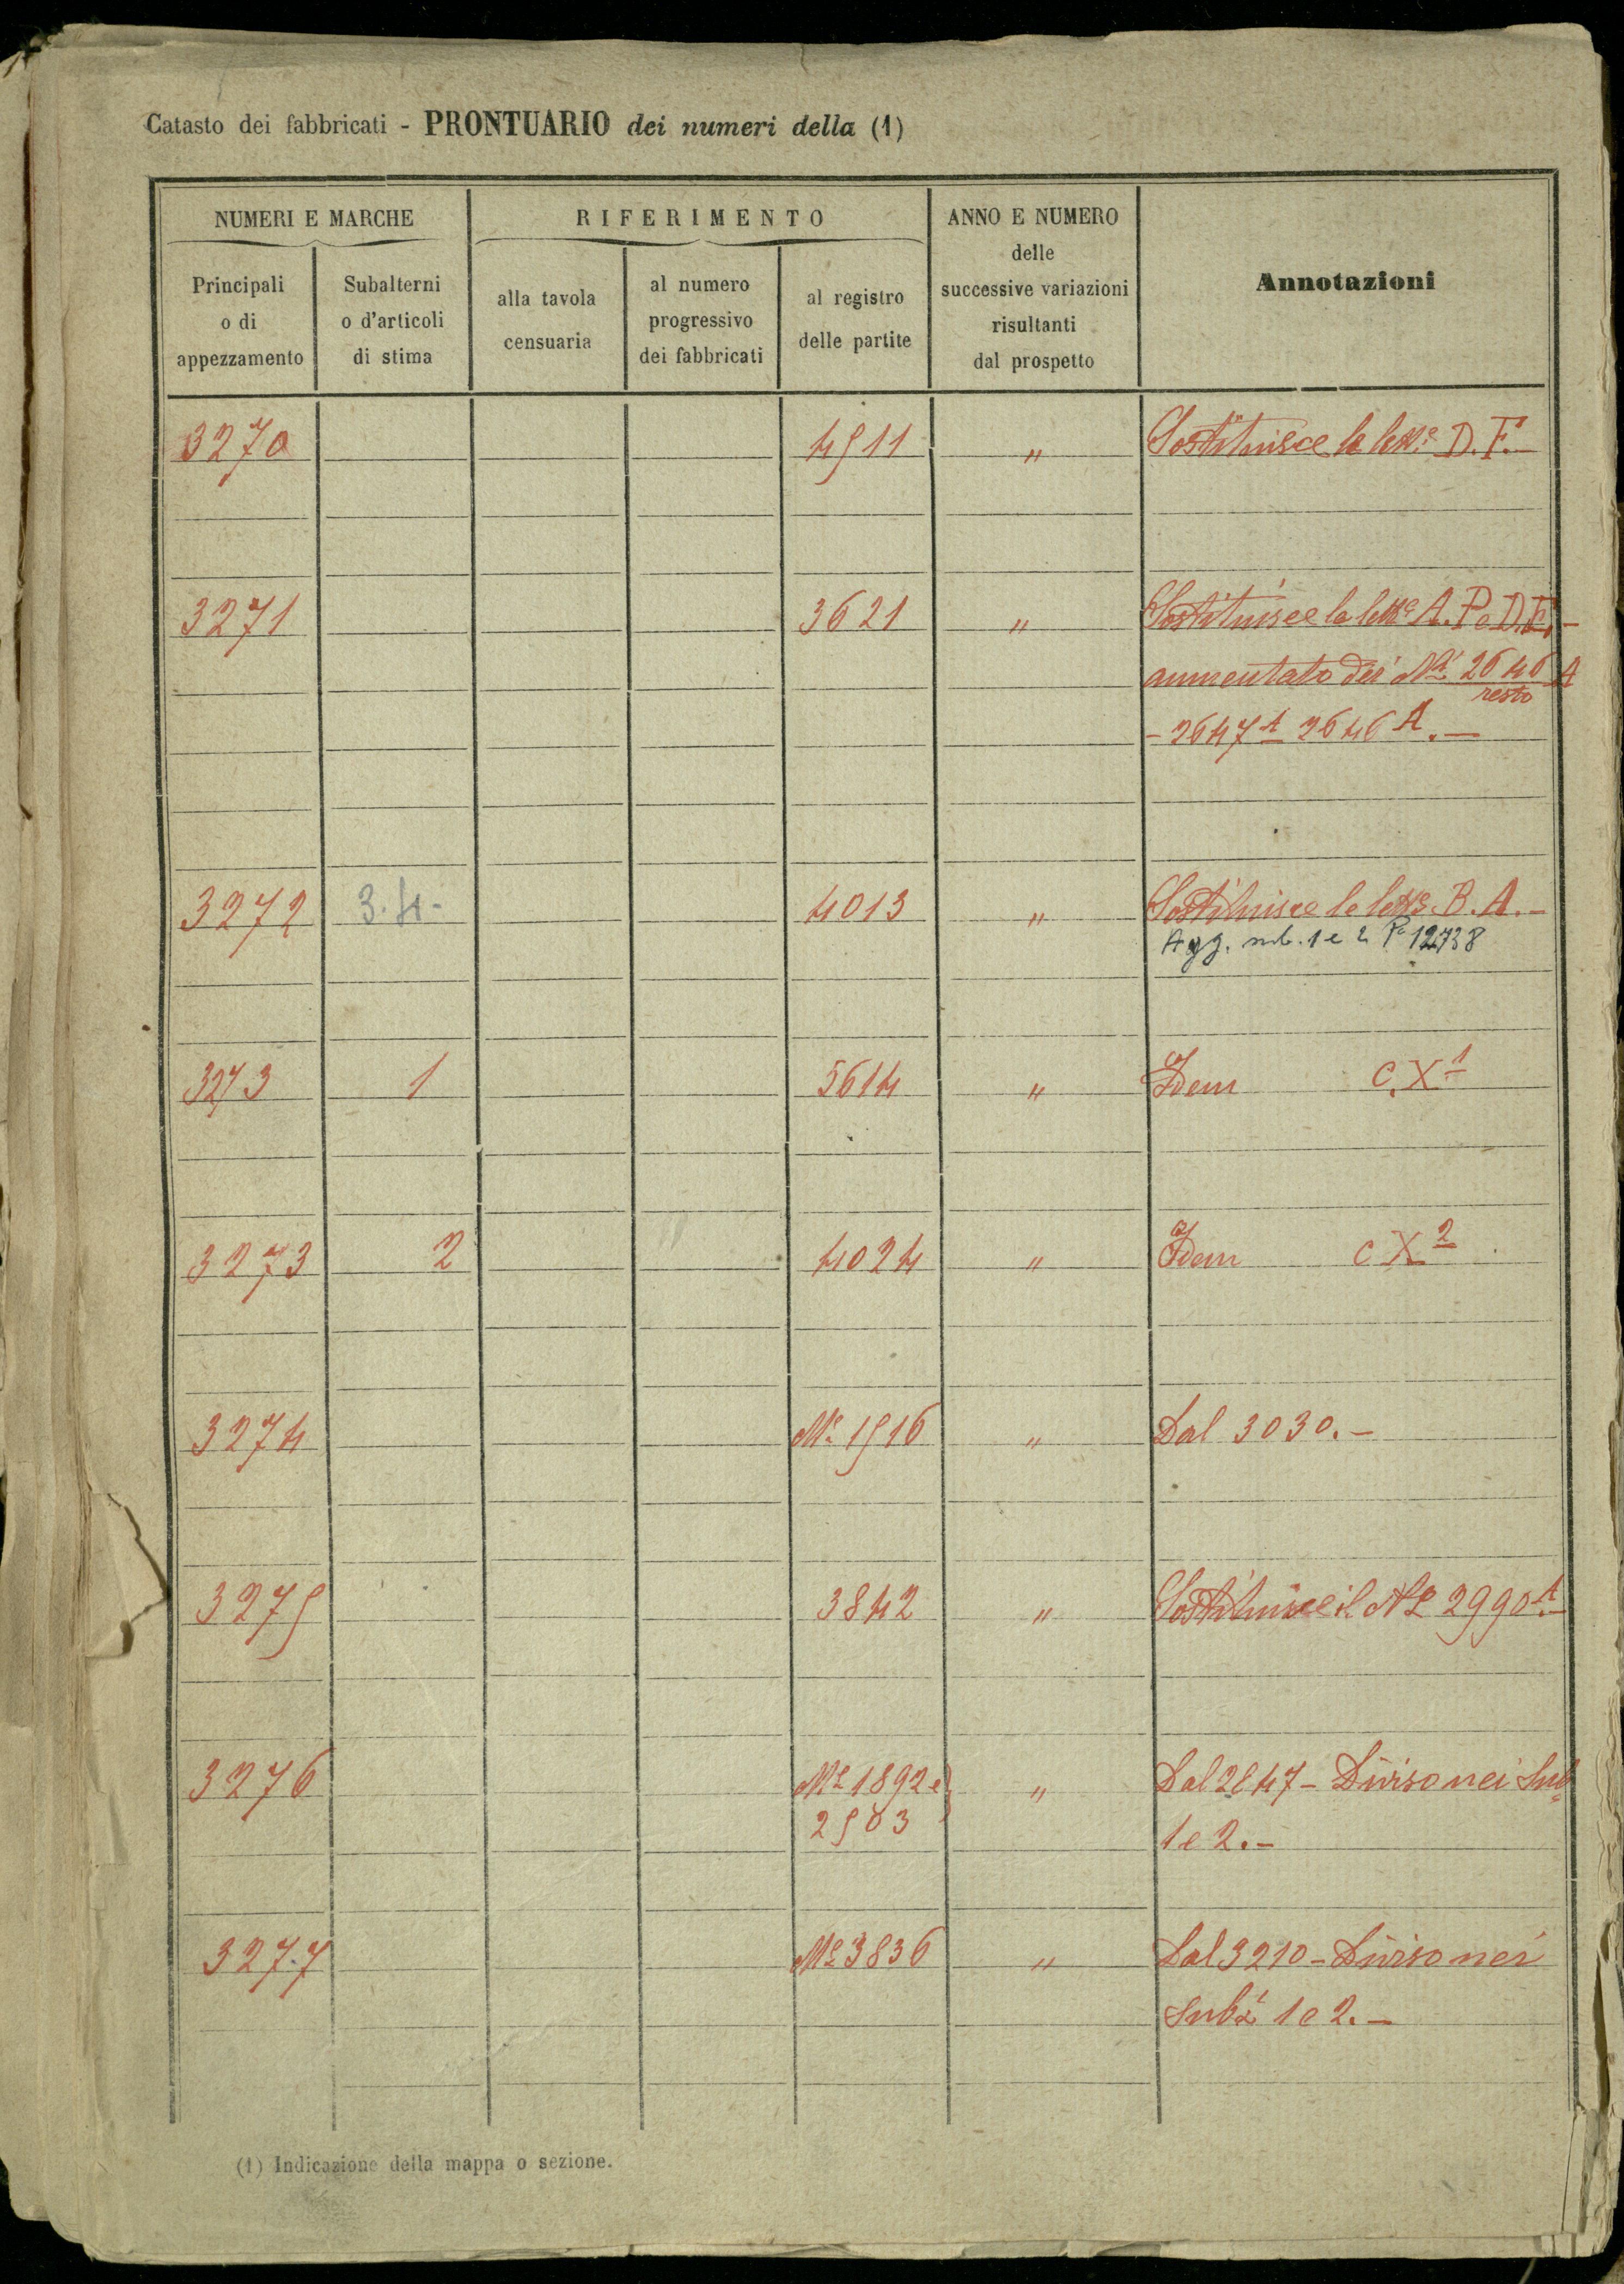 Catasto dei fabbricati - PRONTUARIO dei numeri della (1)
NUMERI E MARCHE
RIFERIMENTO
ANNO E NUMERO
delle
successive variazioni
risultanti
dal prospetto
Annotazioni
Principali
o di
appezzamento
Subalterni
o d'articoli
di stima
alla tavola
censuaria
al numero
progressivo
dei fabbricati
al registro
delle partite
3270 4511 " Sostituisce la lett.e D.F.-
3271 3621 " Sostituisce la lett.e A.P e D.E.-
aumentato dei Ni 2646 A
resto
- 2647 A 2646 A.-
3272 3.4- 4013 " Sostituisce le lett.e B.A.-
Agg. sub. 1 e 2 Pa 12738
3273 1 5614 " Idem C.X 1
3273 2 4024 " Idem C X 2
3274 Ma 1516 " Dal 3030.-
3275 3842 " Sostituisce il No 2990 A.-
3276 Ma 1892 e } " Dal 2647 - Diviso nei Sub
2503 1 e 2.-
3277 Ma 3836 " Dal 3210 - Diviso nei
Subi 1 e 2.-
(1) Indicazione della mappa o sezione.